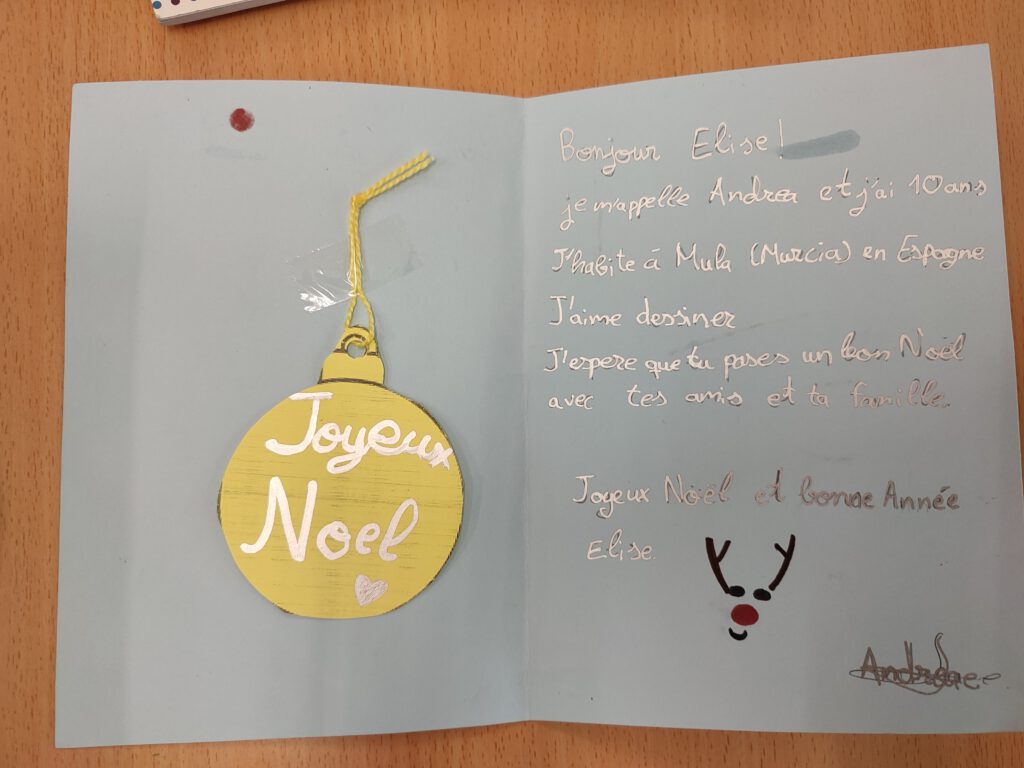 Joyeux
Noel
Bonjour Elise!
je m'appelle Andrea et j'ai 10 ans
J'habite à Mula (Murcia) en Espagne
J'aime dessiner
J'espere que tu pases un bon Noël
avec tes amis et ta famille.
Joyeux Noël et bonne Année
Elise.